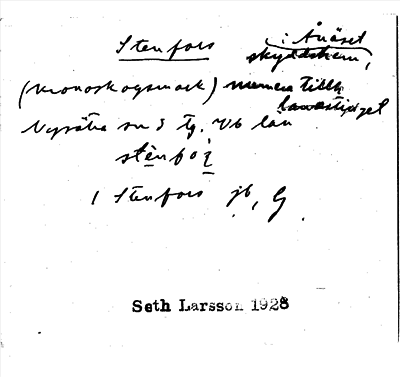 Stenfors i Ånäset
skyddshem,
(kronoskogsmark) numera tillh.
landstinget
Nysätra sn S tg. Vb län
stènfo
1 Stenfors jb, G.
Seth Larsson 1928